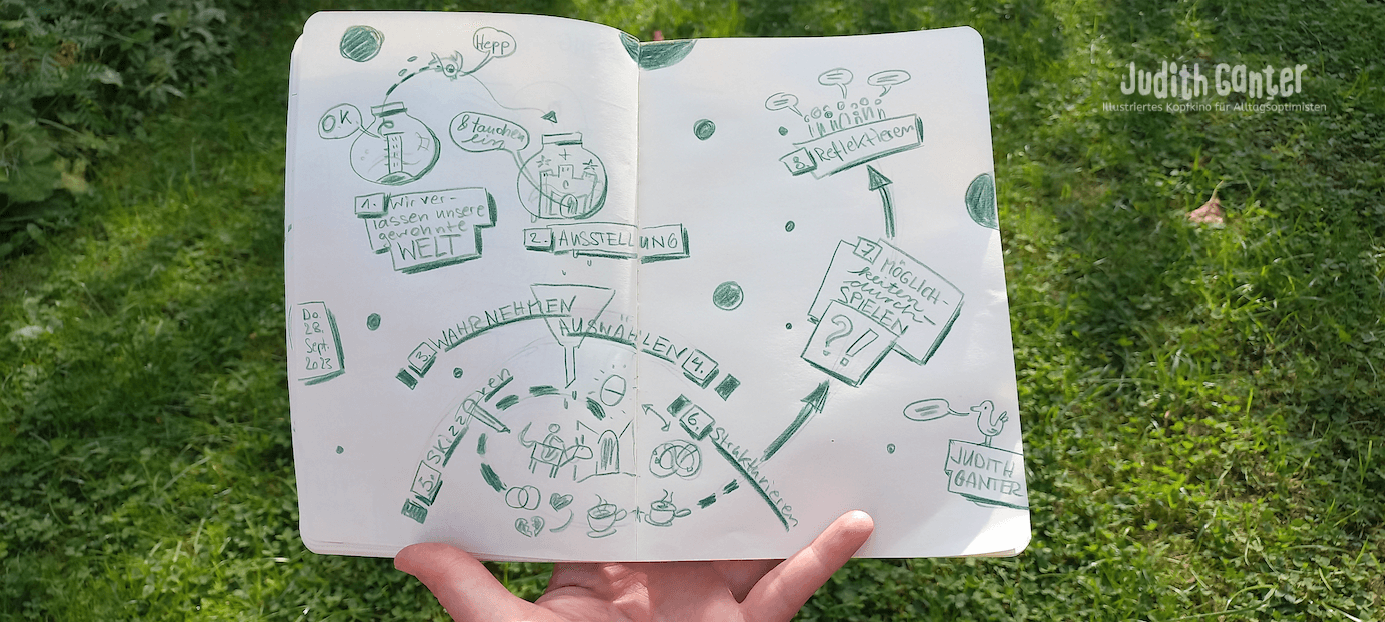 Judith Ganter
Illustriertes Kopfkino für Alltagsoptimisten
Hepp
OK
& tauchen
ein
1. Wir ver-
lassen unsere
gewohnte
WELT
2. AUSSTELLUNG
Do
28.
Sept.
2023
3. WAHRNEHMEN
AUSWÄHLEN 4.
5. SKIZZieren
6. Strukturieren
7. MÖGLICH-
keiten
durch-
SPIELEN
?!
8. Reflektieren
JUDITH
GANTER